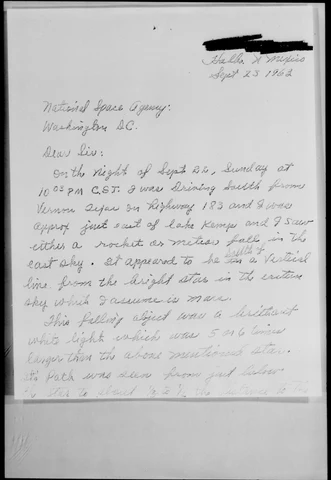 Hobbs N Mexico
Sept 23 1962
National Space Agency:
Washington DC.
Dear Sir:
On the night of Sept 22, Sunday at
10:05 PM C.S.T. I was Driving South from
Vernon Texas on Highway 183 and I was
approx just east of Lake Kemp and I saw
either a rocket or meteor fall in the
east sky. It appeared to be in a Vertical
line from the bright star in the eastern
sky which I assume is mars.
This falling object was a brilliant
white light which was 5 or 6 times
larger than the above mentioned star.
It's Path was seen from just below
the star to about the distance to the